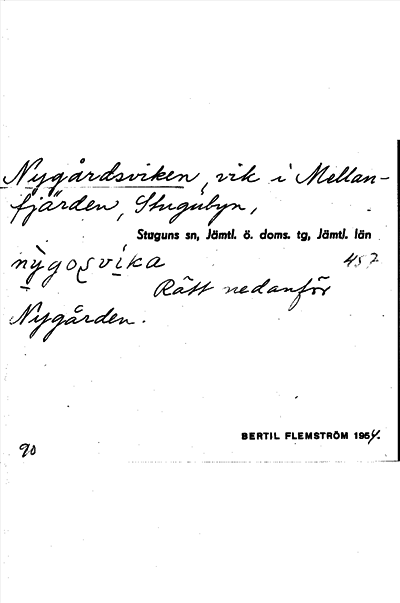 Nygårdsviken, vik i Mellan-
fjärden, Stugubyn,
Stuguns sn, Jämtl. ö. doms. tg, Jämtl. län
nỳgoʂvi̠ka 457
Rätt nedanför
Nygården.
BERTIL FLEMSTRÖM 1954.
90